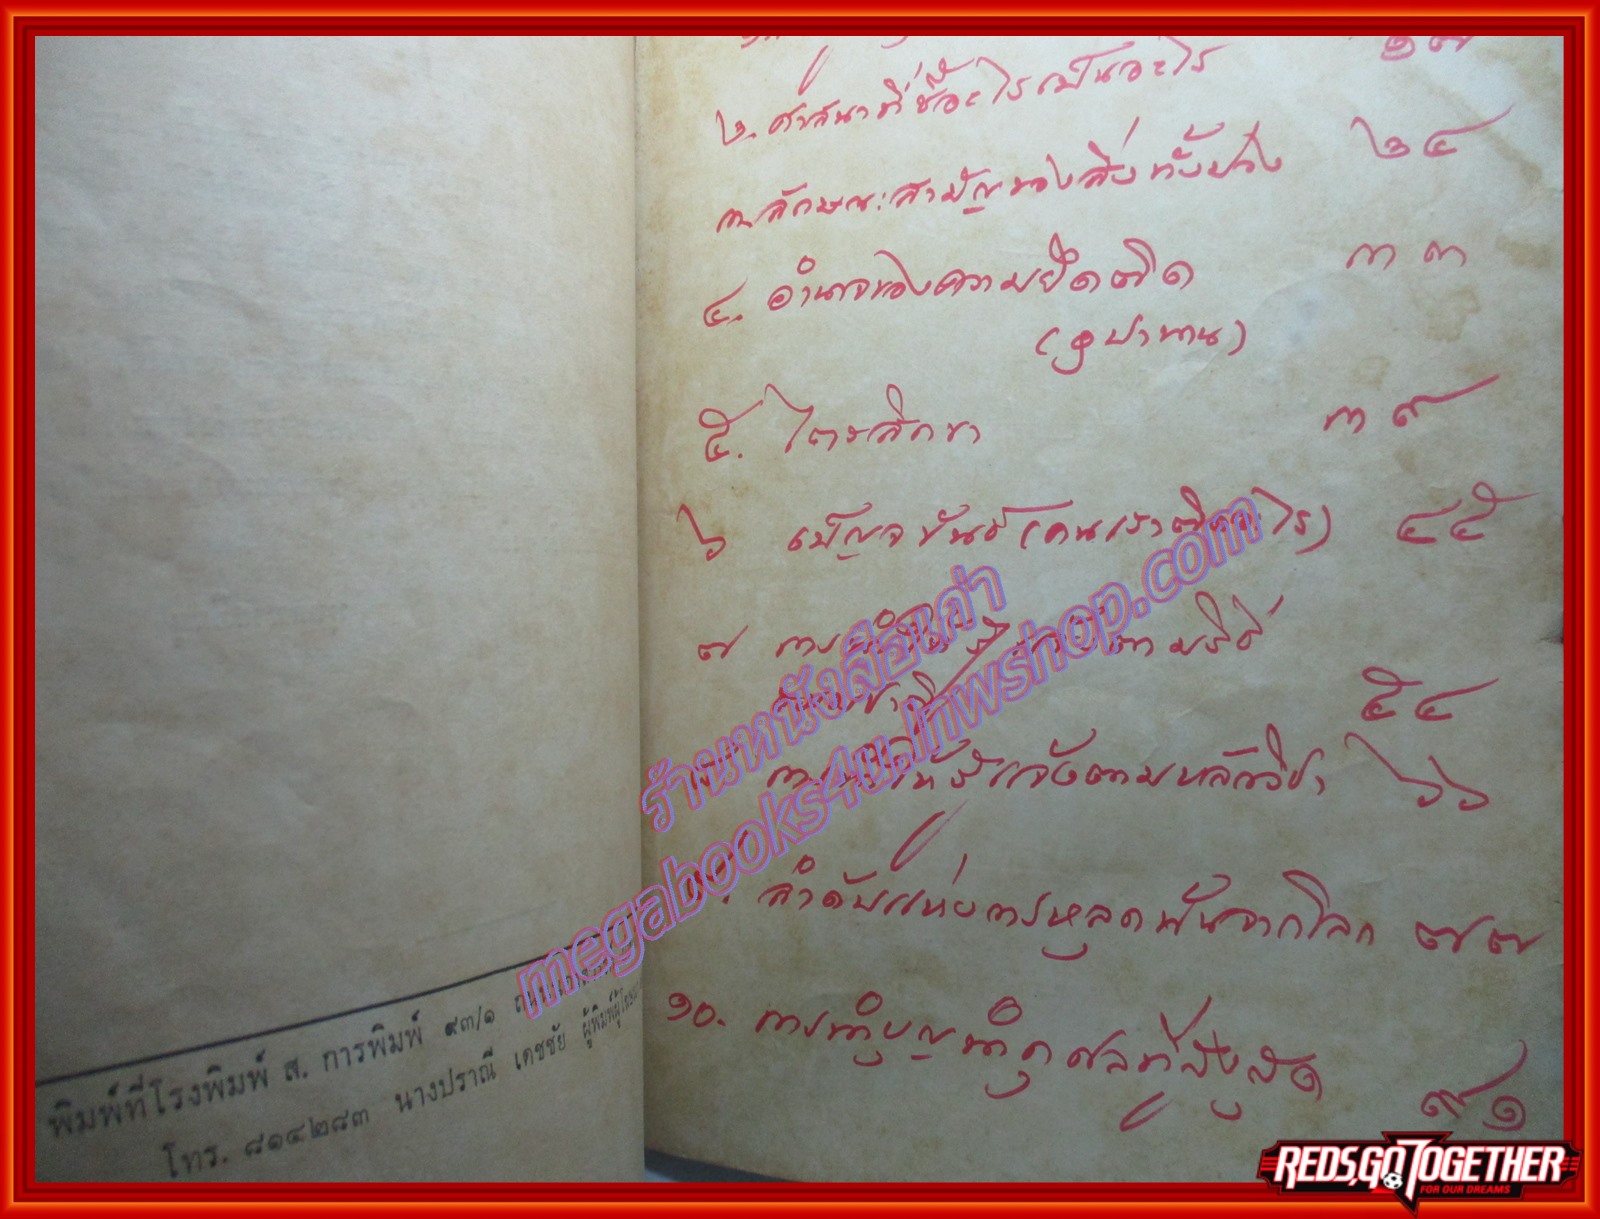 พิมพ์ที่โรงพิมพ์ ส. การพิมพ์ ๙๓/๑
โทร. ๘๑๔๒๘๓ นางปราณี เดชชัย ผู้พิมพ์ผู้โฆษณา
๑๗
๒. ศาสนาที่ชี้อะไรเป็นอะไร
๓. ลักษณะสามัญของสิ่งทั้งปวง ๒๔
๔. อำนาจของความยึดติด ๓๓
(อุปาทาน)
๕. ไตรสิกขา ๓๙
๖ เบ็ญจขันธ์ (คนเราติดอะไร) ๔๕
๗ การทำให้รู้แจ้งตามวิธี
ธรรมชาติ ๕๔
๘. การทำให้รู้แจ้งตามหลักวิชา ๖๖
๙. ลำดับแห่งการหลุดพ้นจากโลก ๗๗
๑๐. การทำบุญทำกุศลที่สูงสุด
๙๑
ร้านหนังสือเก่า
megabooks4u.lnwshop.com
REDS,GO TOGETHER
FOR OUR DREAMS